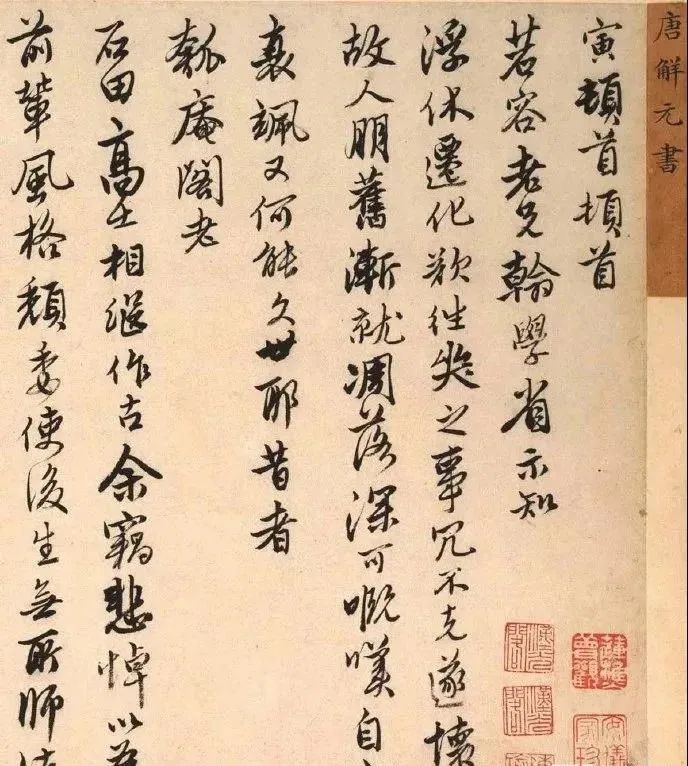 唐解元書
寅頓首頓首
若容老兄翰學省示知
浮休遷化欲往奠之事冗不克遂懷
故人朋舊漸就凋落深可嘅嘆自
衰颯又何能久世耶昔者
瓠庵閣老
石田高士相繼作古余竊悲悼以為
前輩風格頹委使後生無所師法